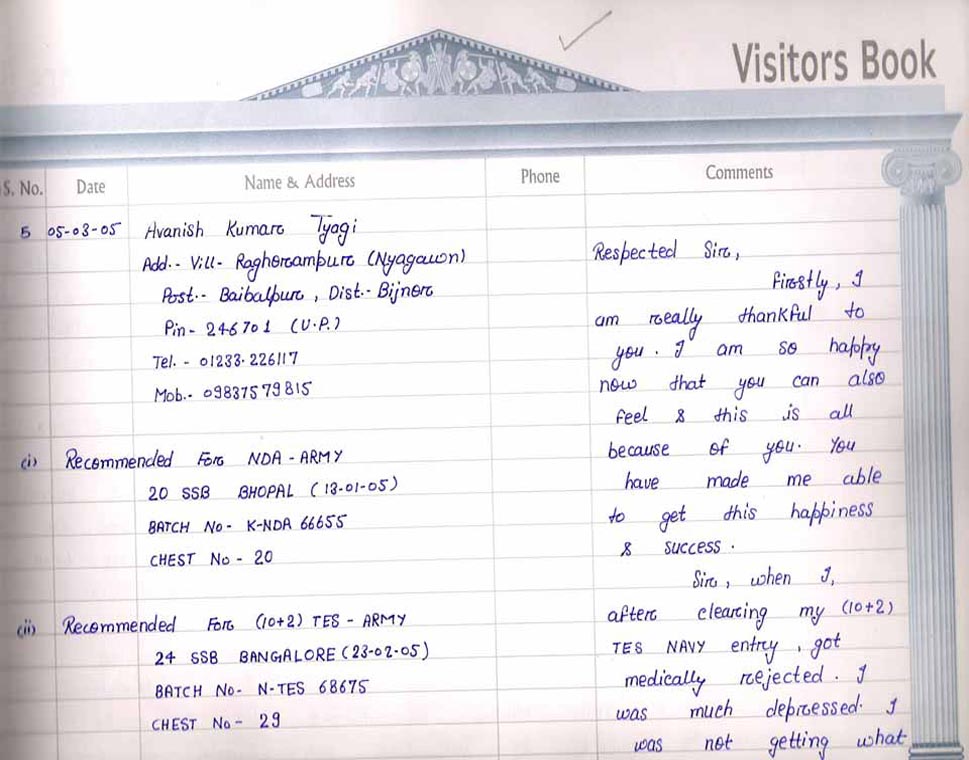 Visitors Book
S. No. Date Name & Address Phone Comments
5 05-03-05 Avanish Kumar Tyagi
Add.- Vill- Raghorampur (Nyagawn)
Post.- Baibalpur, Dist.- Bijnor
Pin- 246701 (U.P.)
Tel. - 01233-226117
Mob.- 09837579815
(i) Recommended For NDA - ARMY
20 SSB BHOPAL (13-01-05)
BATCH No- K-NDA 66655
CHEST No - 20
(ii) Recommended For (10+2) TES - ARMY
24 SSB BANGALORE (23-02-05)
BATCH No- N-TES 68675
CHEST No - 29
Respected Sir,
Firstly, I
am really thankful to
you. I am so happy
now that you can also
feel & this is all
because of you. You
have made me able
to get this happiness
& success.
Sir, when I,
after clearing my (10+2)
TES NAVY entry, got
medically rejected. I
was much depressed. I
was not getting what